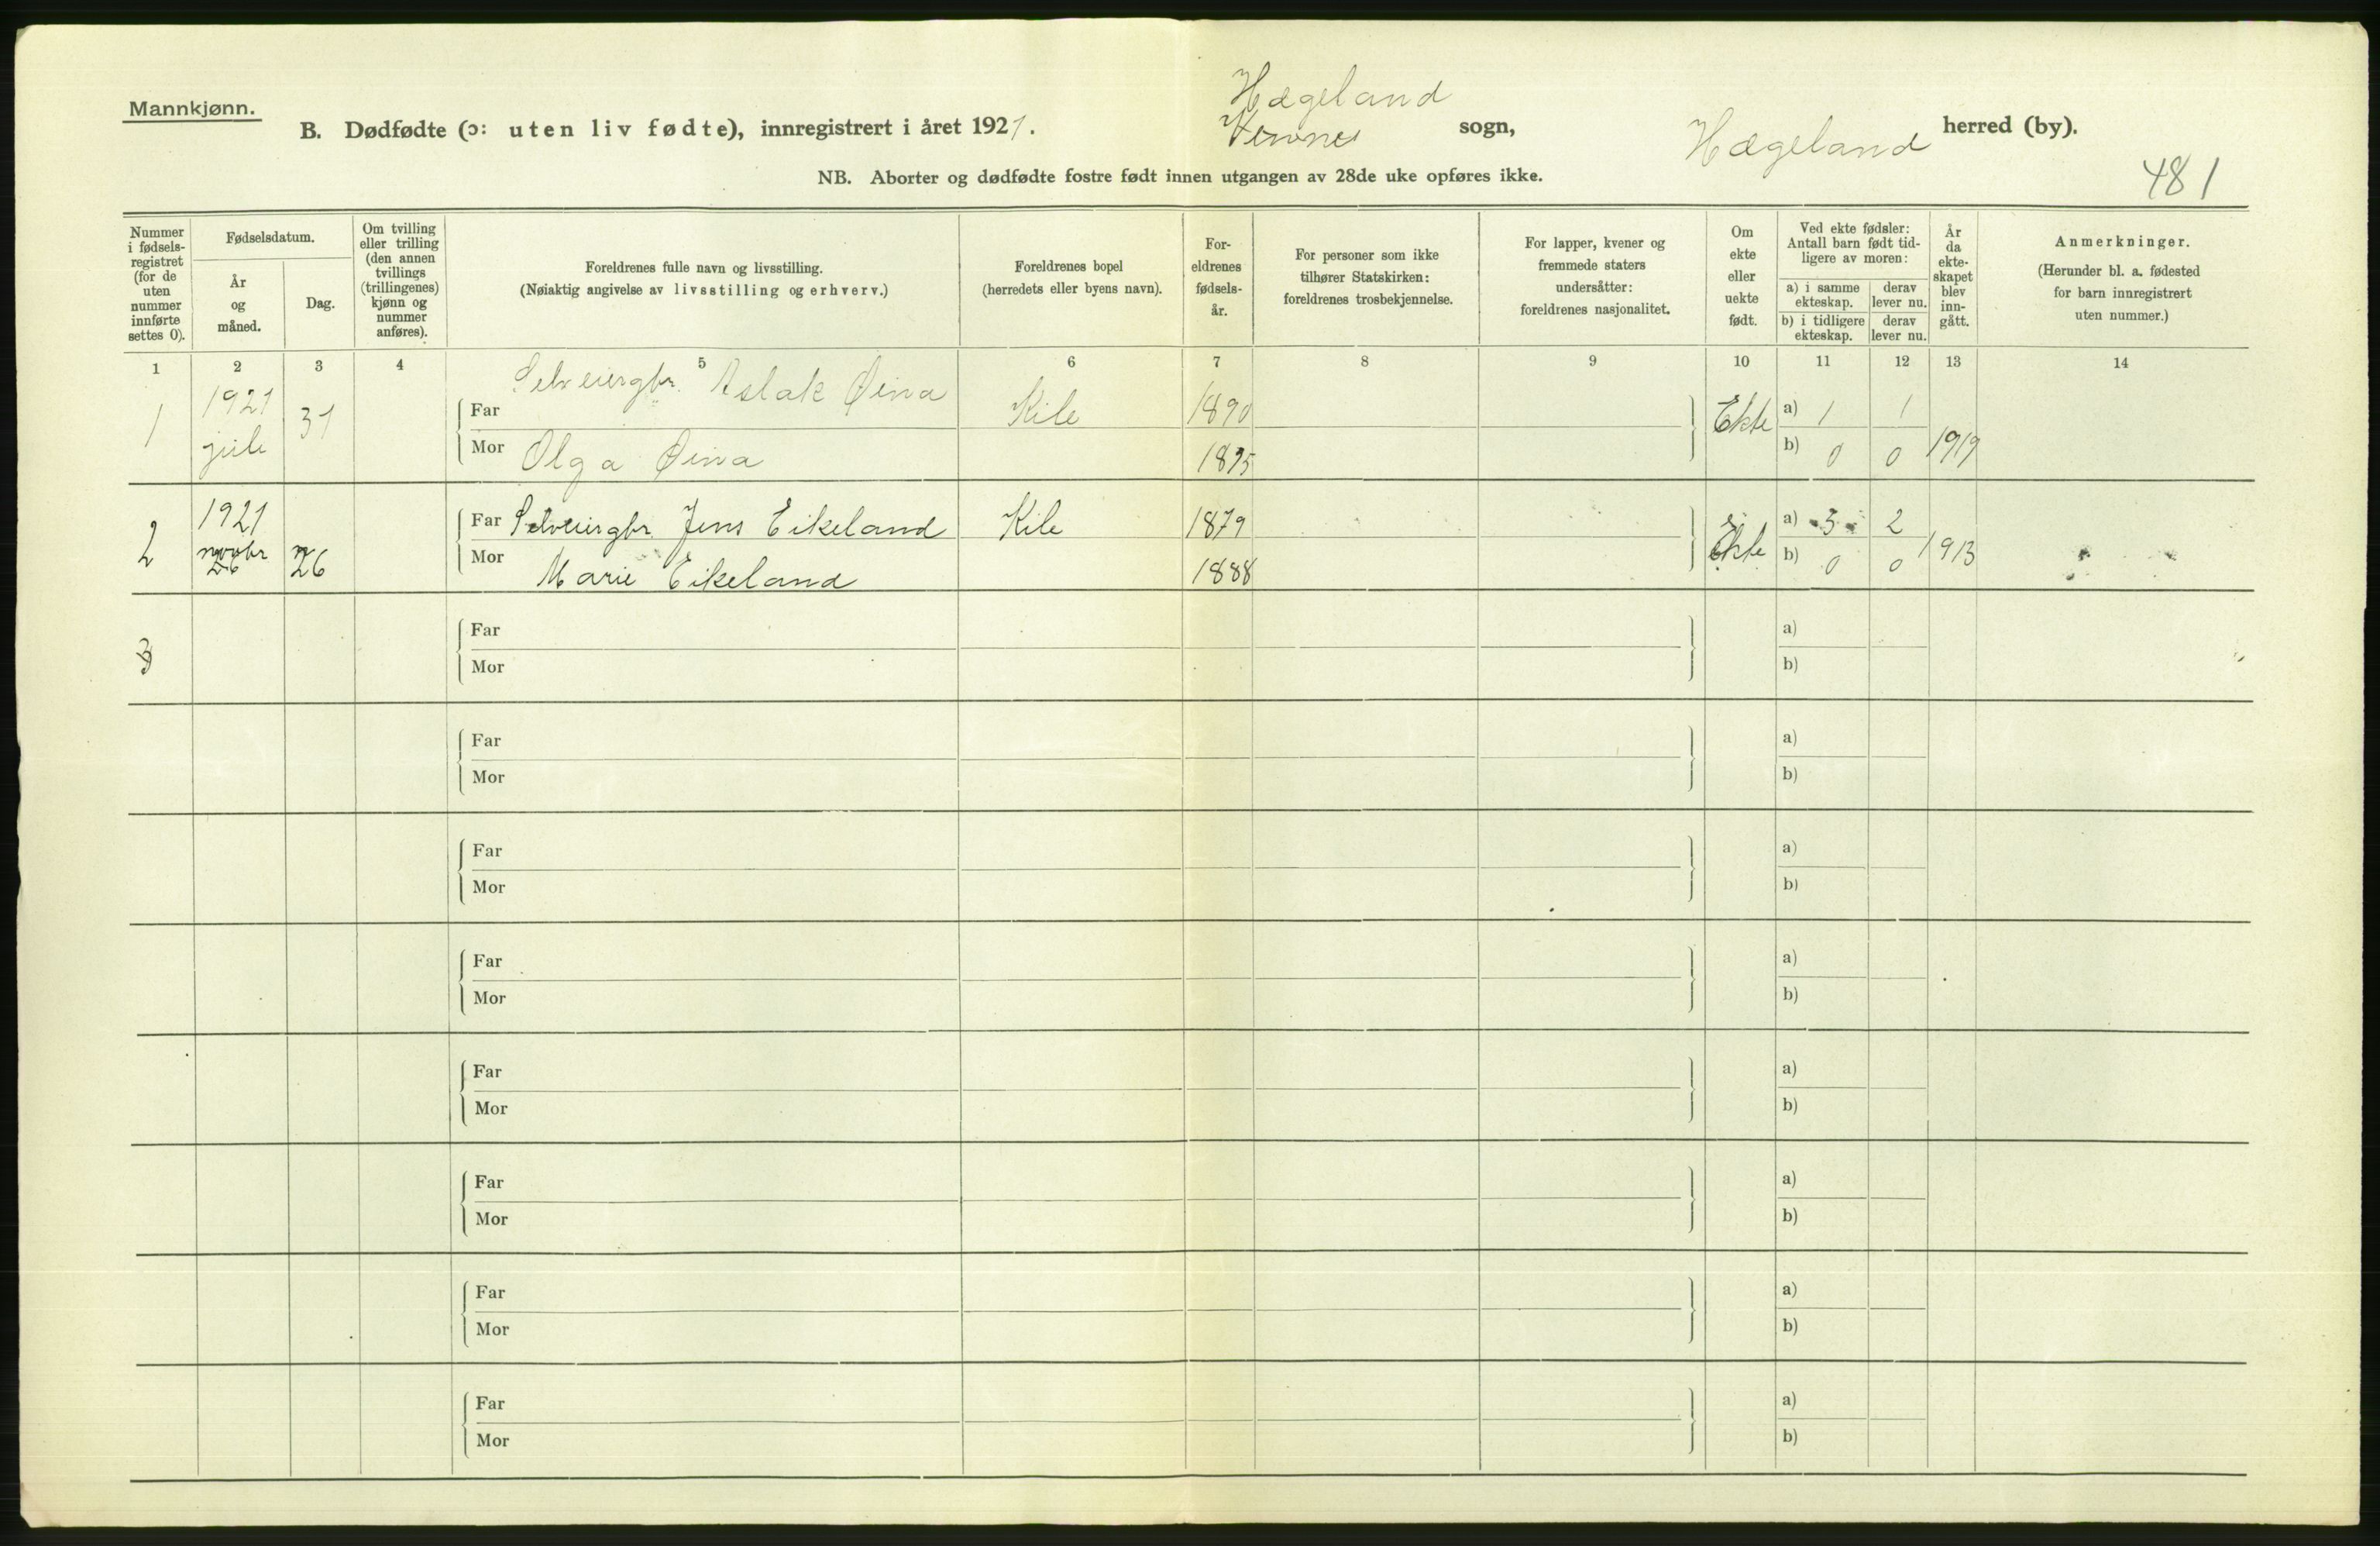 Mannkjønn.
B. Dødfødte (ɔ: uten liv fødte), innregistrert i året 1921.
Hægeland
sogn,
Hægeland herred (by).
NB. Aborter og dødfødte fostre født innen utgangen av 28de uke opføres ikke.
481
Nummer i fødsels-registret (for de uten nummer innførte settes 0).
Fødselsdatum.
År og måned.
Dag.
Om tvilling eller trilling (den annen tvillings (trillingenes) kjønn og nummer anføres).
Foreldrenes fulle navn og livsstilling.
(Nøiaktig angivelse av livsstilling og erhverv.)
Foreldrenes bopel
(herredets eller byens navn).
For-eldrenes fødsels-år.
For personer som ikke tilhører Statskirken: foreldrenes trosbekjennelse.
For lapper, kvener og fremmede staters undersåtter: foreldrenes nasjonalitet.
Om ekte eller uekte født.
Ved ekte fødsler: Antall barn født tid-ligere av moren:
a) i samme ekteskap.
derav lever nu.
b) i tidligere ekteskap.
derav lever nu.
År da ekte-skapet blev inn-gått.
Anmerkninger.
(Herunder bl. a. fødested for barn innregistrert uten nummer.)
1 2 3 4 5 6 7 8 9 10 11 12 13 14
1 1921 juli 31
Far Selveiergbr. Aslak Øina Kile 1890 Ekte a) 1 1
Mor Olga Øina 1895 b) 0 0 1919
2 1921 novbr 26
Far Selveiergbr. Jens Eikeland Kile 1879 Ekte a) 3 2
Mor Marie Eikeland 1888 b) 0 0 1913
3
Far a)
Mor b)
Far a)
Mor b)
Far a)
Mor b)
Far a)
Mor b)
Far a)
Mor b)
Far a)
Mor b)
Far a)
Mor b)
Far a)
Mor b)